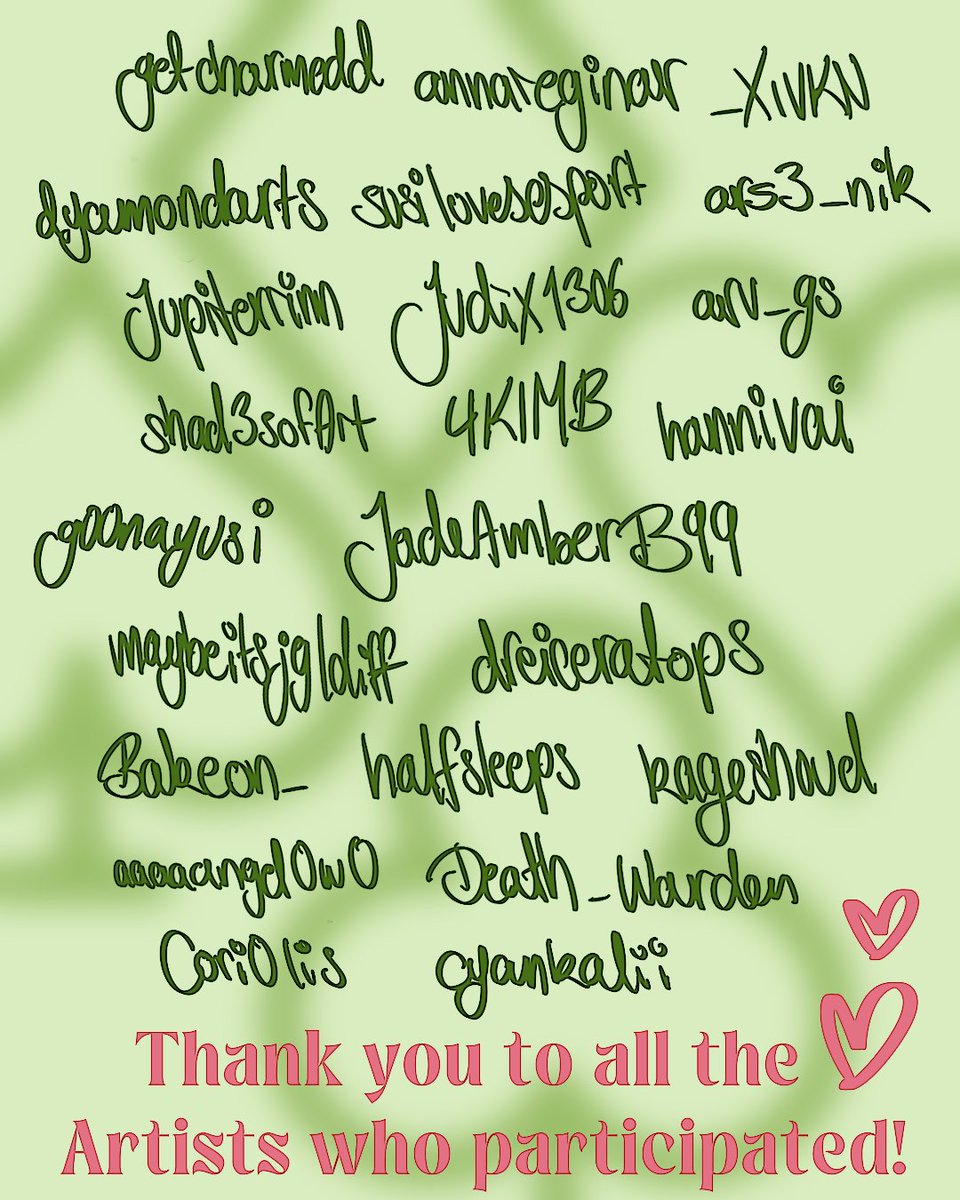 getcharmedd annareginar _XIVKN
dyamondarts susilovesesport ars3_nik
Jupiterrinn Judix1306 arv_gs
shad3sofArt 4KIMB hannivai
g00nayusi JadeAmberB99
maybeitsjgldiff dreiceratops
Bakeon_ halfsleeps kageshovel
aaaaangel0w0 Death_Warden
Cori0lis cyankalii
Thank you to all the
Artists who participated!